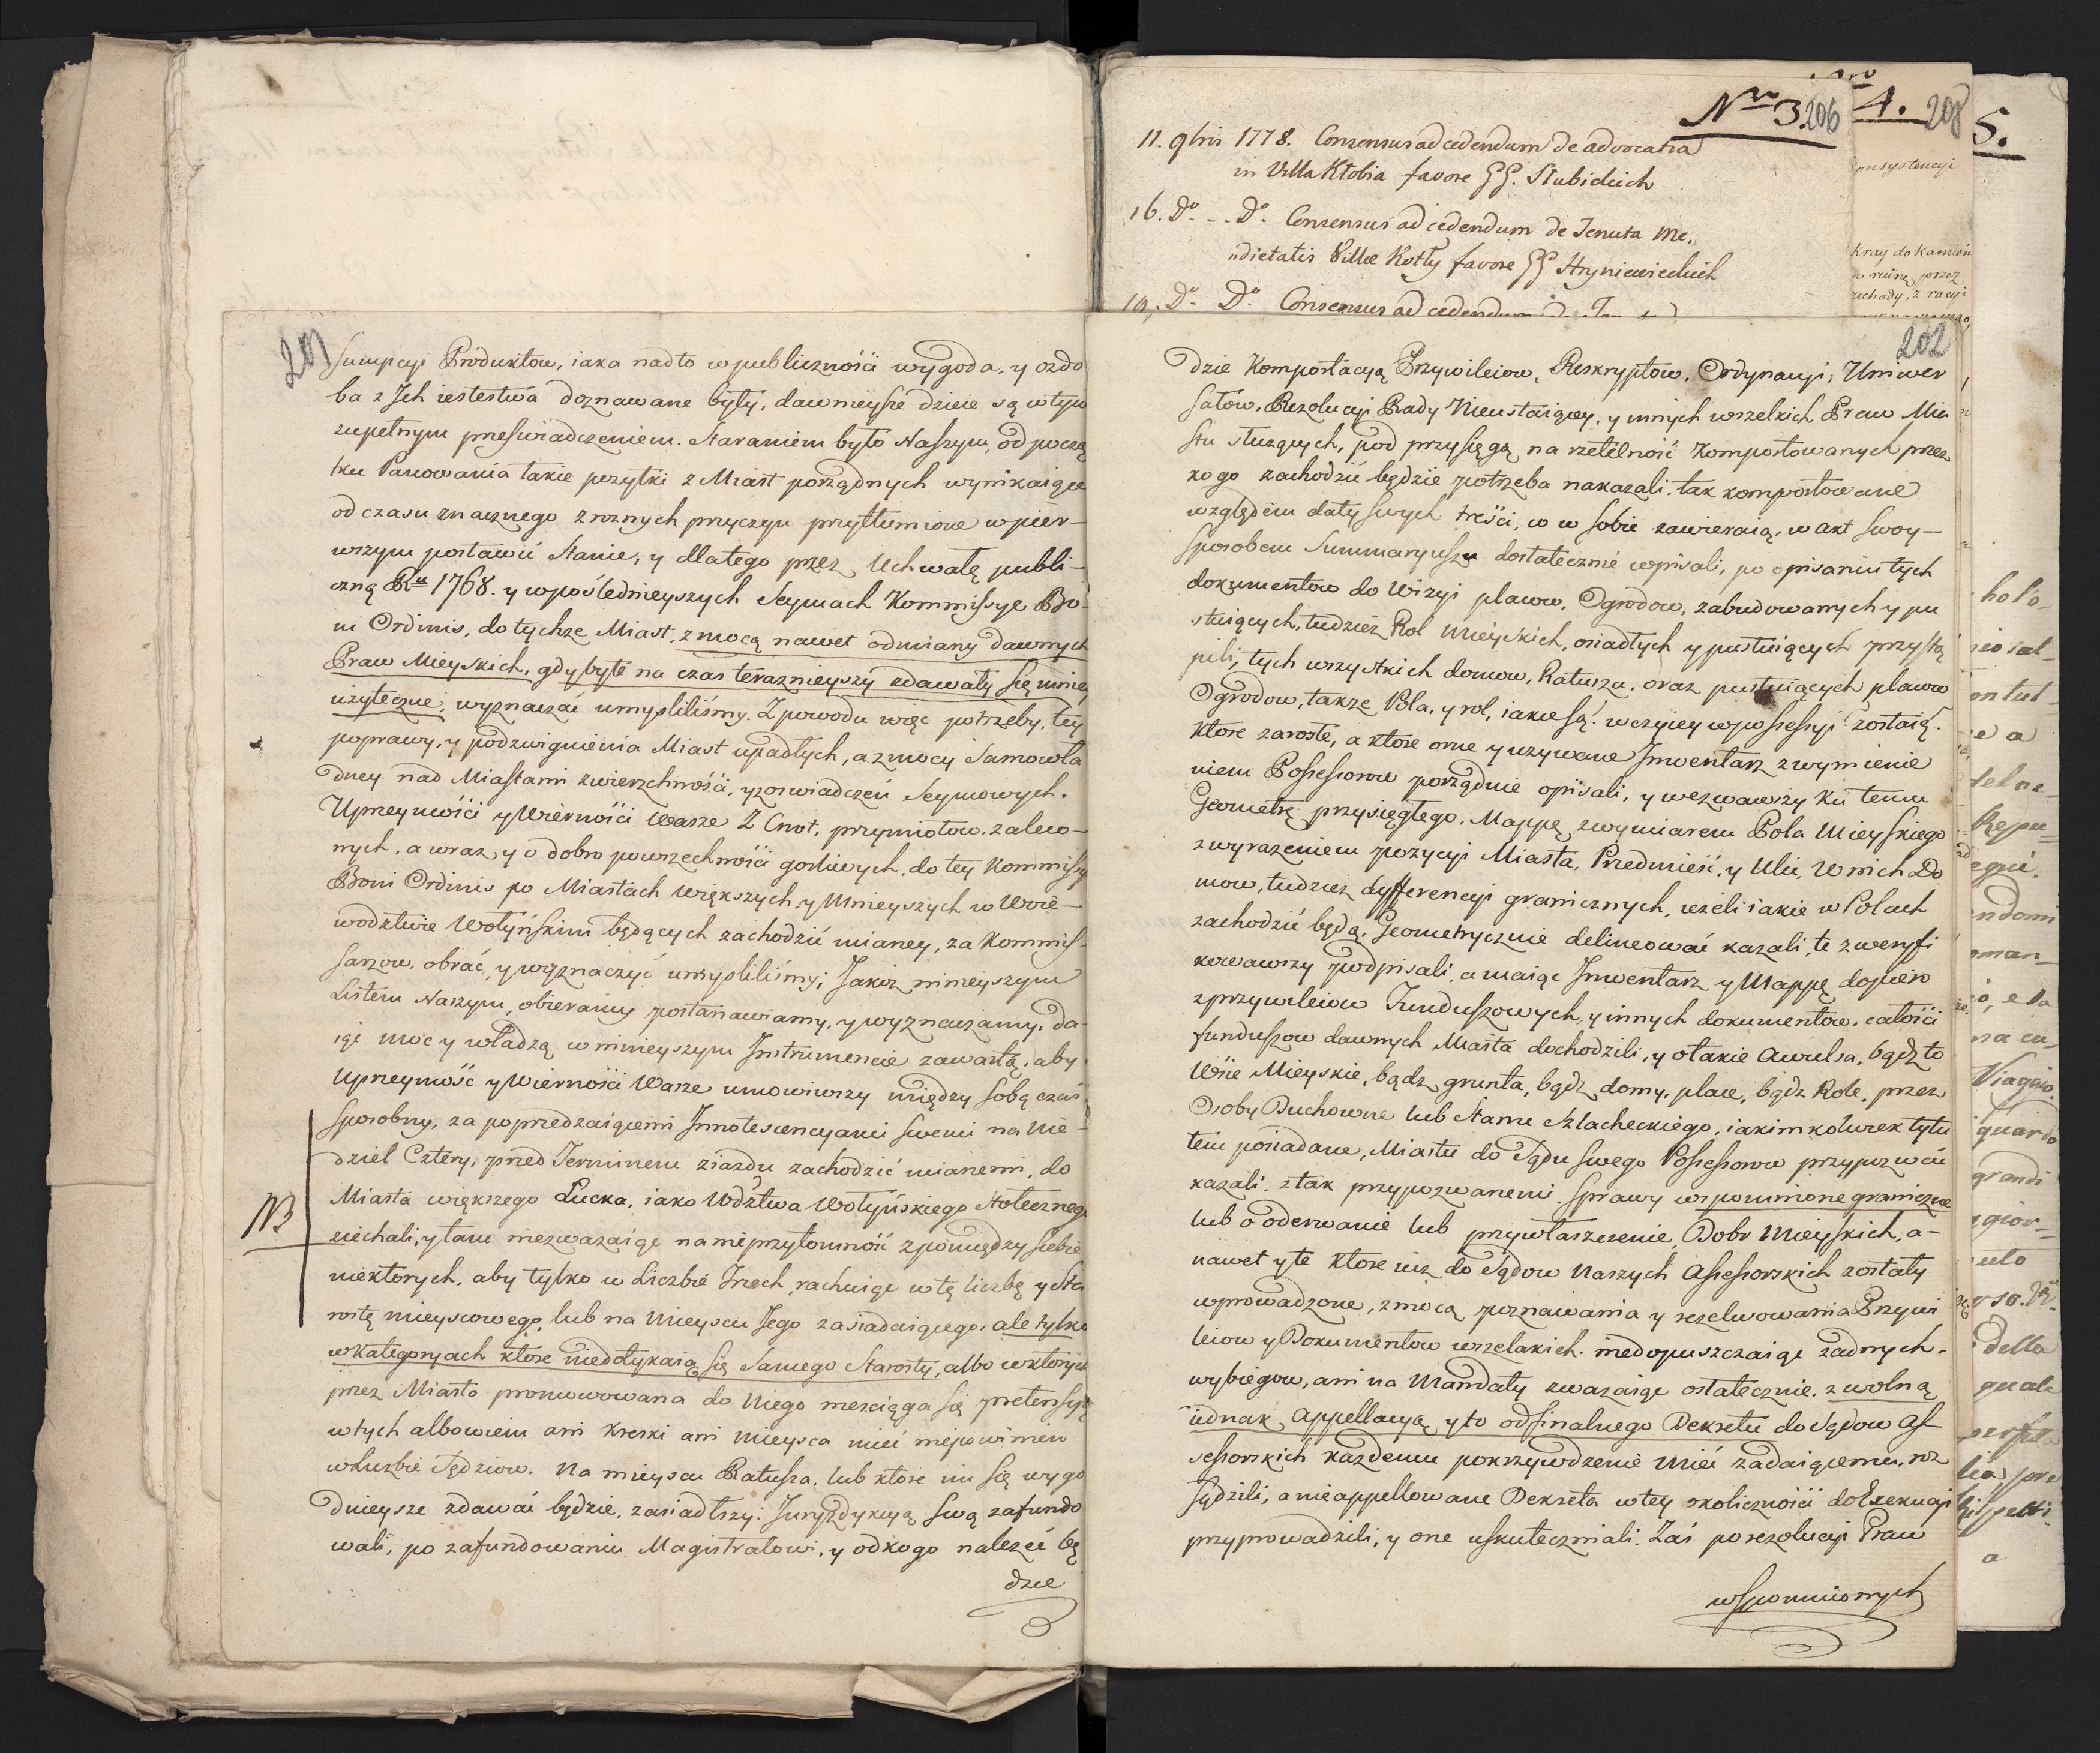 201
sumpcyi Produktow, iaka nadto w publicznośći wygoda, y ozdo
ba z Jch iestestwa doznawane były, dawnieysze dzieie są w tym
zupełnym przeświadczeniem. Staraniem było Naszym, od począ
tku Panowania takie pozytki z Miast porządnych wynikaiące
od czasu znacznego z roznych przyczyn przytłumione w pier-
wszym postawić Stanie, y dlatego przez Uchwałę publi-
czną Ru 1768. y w poślednieyszych Seymach Kommissye Bo-
ni Ordinis, do tychze Miast, z mocą nawet odmiany dawnych
Praw Mieyskich, gdyby te na czas teraznieyszy zdawały się mniey
uzyteczne, wyznaczać umysliliśmy. Z powodu więc potrzeby, tey
poprawy, y podzwignienia Miast upadłych, a z mocy Samowła
dney nad Miastami zwierzchnośći, y zoswiadczeń Seymowych.
Uprzeymośći y Wiernośći Wasze Z Cnot, przymiotow, zaleco-
nych, a wraz y o dobro powszechnośći gorliwych, do tey Kommissyi
Boni Ordinis po Miastach Większych y Mnieyszych w Woie-
wodztwie Wołyńskim będących zachodzić mianey, za Kommis-
sarzow, obrać, y wyznaczyć umysliliśmy; Jakoz ninieyszym
Listem Naszym, obieramy postanawiamy, y wyznaczamy, da-
iąc moc y władzą w ninieyszym Jnstrumencie zawartą, aby
Uprzeymość y Wiernośći Wasze umowiwszy między sobą czas
sposobny, za poprzedzaiącemi Jnnotescencyami swemi na Nie-
dziel Cztery, przed Terminem ziazdu zachodzić mianemi, do
Miasta większego Łucka, iako Wdztwa Wołyńskiego Stołecznego
NB
ziechali, y tam niezwazaiąc na nieprzytomność z pomiędzy siebie
niektorych, aby tylko w Liczbie Trzech, rachuiąc w tę liczbę y Sta
rostę mieyscowego, lub na Mieyscu Jego zasiadaiącego, ale tylko
w Kategoryach ktore niedotykaią się Samego Starosty, albo w ktorych
przez Miasto promowowana do Niego niesciąga się pretensya
w tych albowiem ani Kreski ani Mieysca mieć niepowinien
w Liczbie Sędziow. Na mieyscu Ratusza, lub ktore im się wygo
dnieysze zdawać będzie, zasiadłszy: Juryzdykcyą swą zafundo
wali, po zafundowaniu Magistratowi, y od kogo nalezeć bę
dzie
Nro 3.
206
11. 9bris 1778. Consensus ad cedendum de advocatia
in Villa Kłobia favore GG. Słubickich
16. Do. -- Do. Consensus ad cedendum de Tenuta Me,,
,,dietatis Villæ Kotły favore GG Hryniewieckich
19. Do. Do. Consensus ad cedendum
4.
208
5.
202
dzie Komportacyą Przywileiow, Reskryptow, Ordynacyi, Uniwer
sałow, Rezolucyi Rady Nieustaiącey, y innych wszelkich Praw Mia
stu słuzących, pod przysięgą na rzetelność Komportowanych przez
kogo zachodzić będzie potrzeba nakazali, tak komportowane
względem daty swych treści, co w sobie zawieraią, w akt swoy-
sposobem Summaryuszu dostatecznie wpisali, po opisaniu tych
dokumentow do Wizyi placow, Ogrodow, zabudowanych y pu
stuiących, tudziesz Rol Mieyskich, osiadłych y pustuiących przystą
pili, tych wszystkich domow, Ratusza, oraz pustuiących placow
Ogrodow, takze Pola, y rol, iakie są? w czyiey w possessyi? zostaią.
Ktore zarosłe, a ktore orne y uzywane Jnwentarz z wymienie
niem Possessorow porządnie opisali, y wezwawszy ku temu
Geometrę przysięgłego, Mappę z wymiarem Pola Mieyskiego
z wyrazeniem pozycyi Miasta, Przedmieść, y Ulic, W nich Do
mow, tudziez dyfferencyi granicznych, iezeli iakie w Polach
zachodzić będą, Geometrycznie delineować kazali, te zweryfi
kowawszy podpisali, a maiąc Jnwentarz y Mappę dopiero
z przywileiow Funduszowych, y innych dokumentow, całośći
funduszow dawnych Miasta dochodzili, y o takie Awulsa, bądz to
Wsie Mieyskie, bądz grunta, bądz domy, place, bądz Role, przez
Osoby Duchowne lub Stanu Szlacheckiego, iakimkolwiek tytu
łem posiadane, Miastu do Sądu swego Possessorow przypozwać
kazali, z tak przypozwanemi, Sprawy wspomnione graniczne
lub o oderwanie lub przywłaszczenie, Dobr Mieyskich, a-
nawet y te ktore iuz do Sądow Naszych Assessorskich zostały
wprowadzone, z mocą poznawania y rezolwowania Przywi
leiow y Dokumentow wszelakich, niedopuszczaiąc zadnych-
wybiegow, ani na Mandaty zwazaiąc ostatecznie, z wolną
iednak, appellacyą y to od finalnego Dekretu do Sądow As
sessorskich kazdemu pokrzywdzenie Mieć zadaiącemu, roz
sądzili, a nieappellowane Dekreta w tey okolicznośći do Exekucyi
przyprowadzili, y one uskuteczniali. Zaś po rezolucyi Praw
wspomnionych